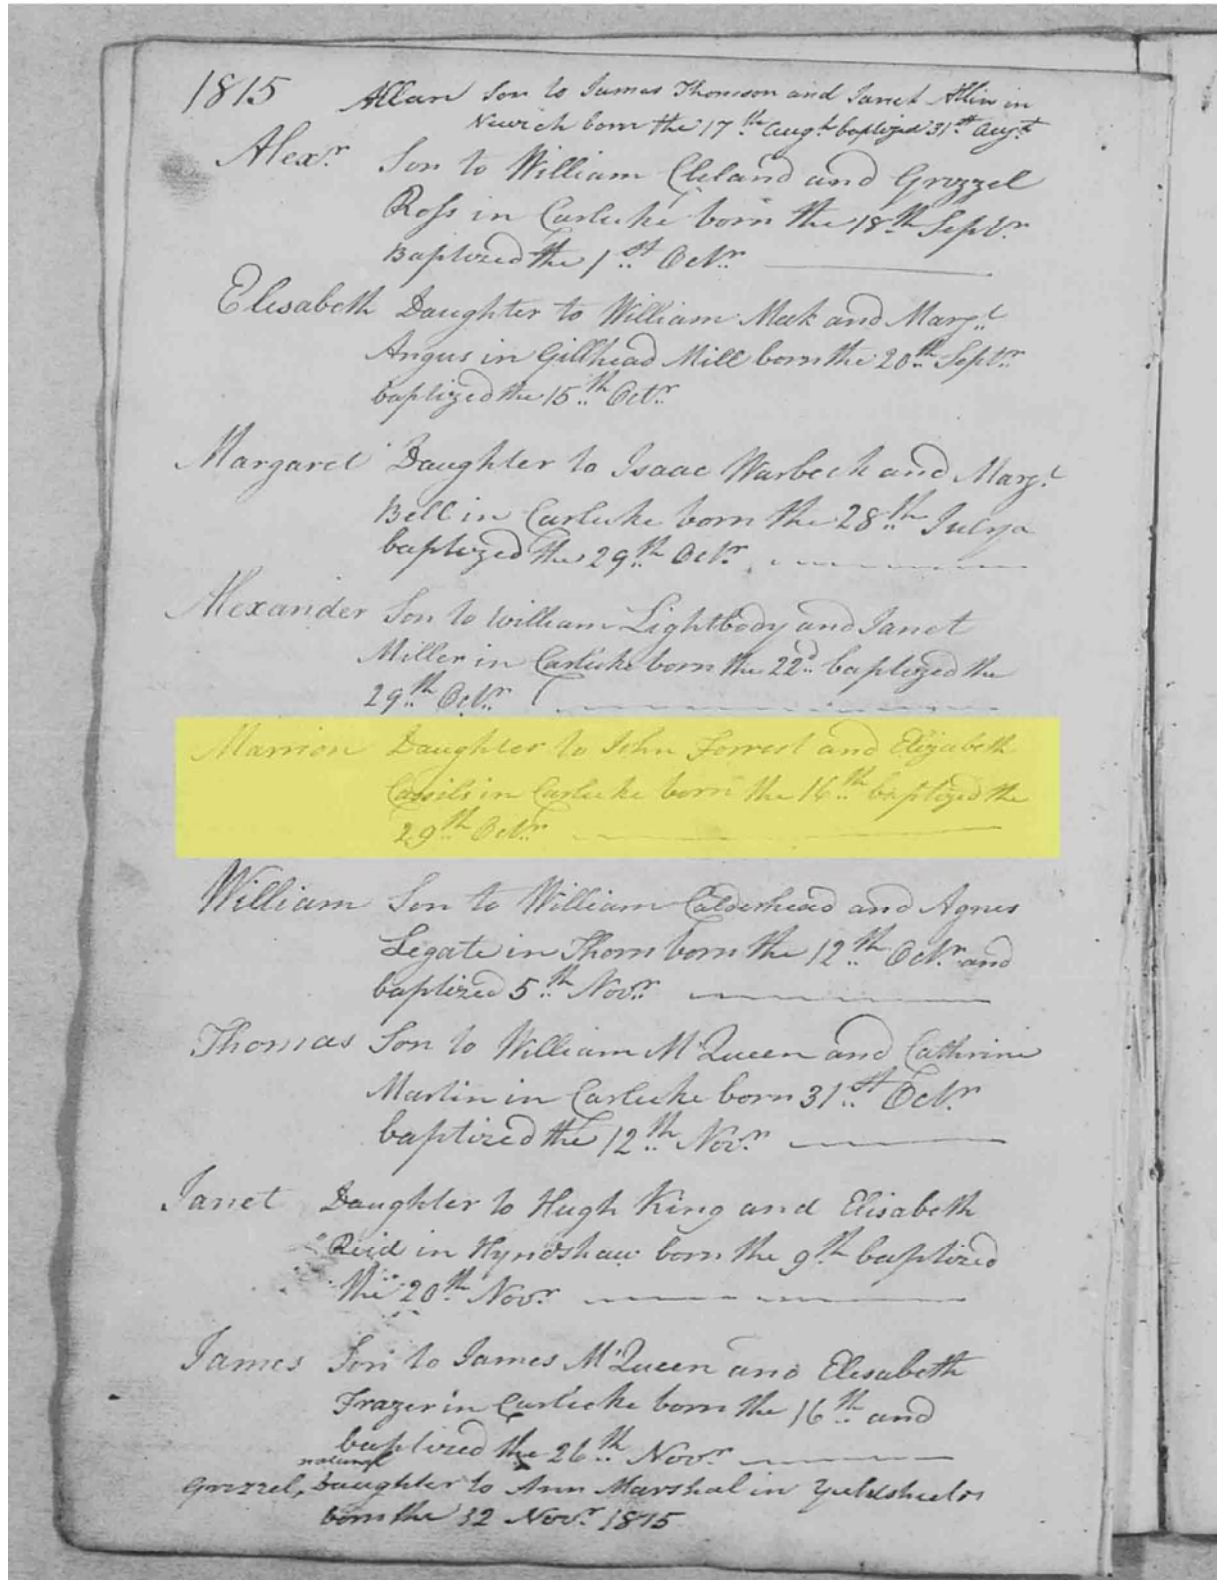 1815 Allan Son to James Thomson and Janet Allin in
Newich born the 17th Augt baptized 31st Augt
Alexr Son to William Cleland and Grizzel
Ross in Carluke born the 18th Septr
Baptized the 1st Octr
Elisabeth Daughter to William Meek and Margt
Angus in Gillhead Mill born the 20th Septr
baptized the 15th Octr
Margaret Daughter to Isaac Warbeck and Margt
Bell in Carluke born the 28th July
baptized the 29th Octr
Alexander Son to William Lightbody and Janet
Miller in Carluke born the 22d baptized the
29th Octr
Marrion Daughter to John Forrest and Elizabeth
Cassils in Carluke born the 16th baptized the
29th Octr
William Son to William Calderhead and Agnes
Legate in Thorn born the 12th Octr and
baptized 5th Novr
Thomas Son to William McQueen and Cathrine
Martin in Carluke born 31st Octr
baptized the 12th Novr
Janet Daughter to Hugh King and Elisabeth
Reid in Hyndshaw born the 9th baptized
the 20th Novr
James Son to James McQueen and Elesabeth
Frazer in Carluke born the 16th and
baptized the 26th Novr
natural
Grizzel, Daughter to Ann Marshal in Yuldshields
born the 12 Novr 1815